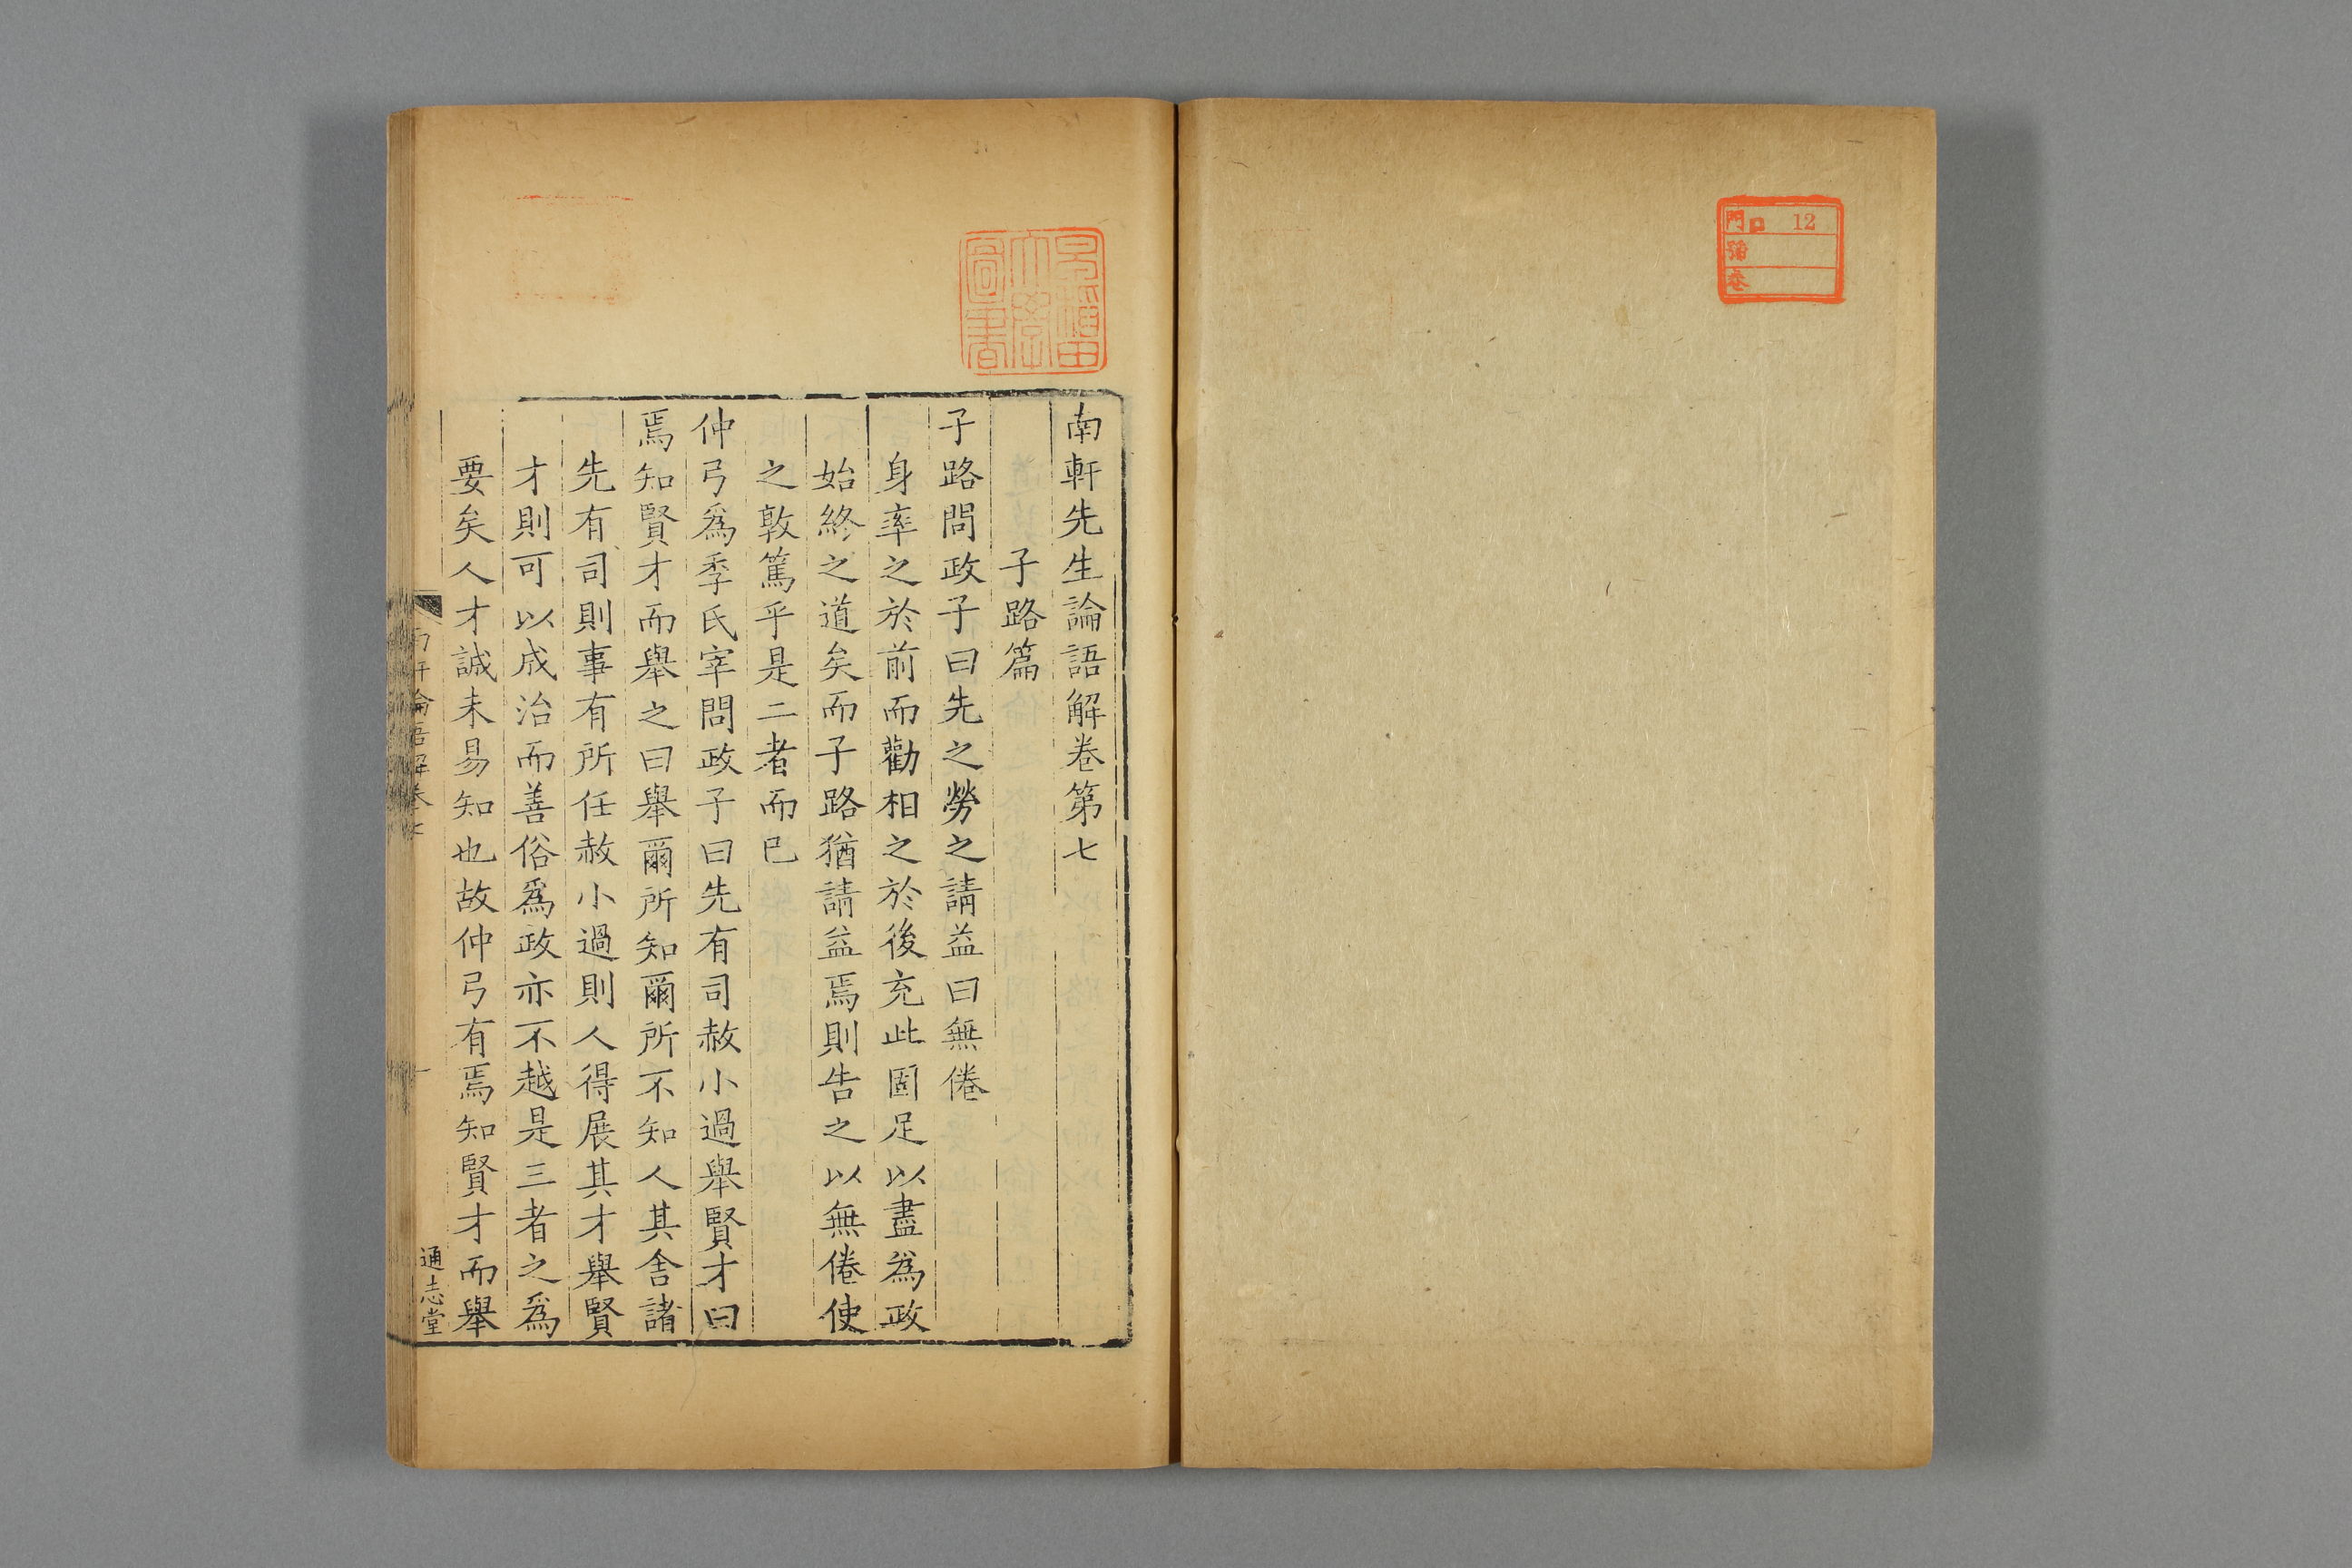 門 12
號
卷
早稲田
大學
圖書
南軒先生論語解卷第七
子路篇
子路問政子曰先之勞之請益曰無倦
身率之於前而勸相之於後充此固足以盡為政
始終之道矣而子路猶請益焉則告之以無倦使
之敦篤乎是二者而已
仲弓為季氏宰問政子曰先有司赦小過舉賢才曰
焉知賢才而舉之曰舉爾所知爾所不知人其舍諸
先有司則事有所任赦小過則人得展其才舉賢
才則可以成治而善俗為政亦不越是三者之為
要矣人才誠未易知也故仲弓有焉知賢才而舉
南軒論語解卷七
一
通志堂